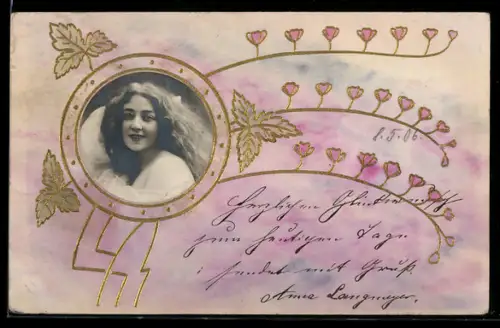 8.5.06.
Herzlichen Glückwunsch
zum heutigen Tage
sendet mit Gruß
Anna Langmeyer.